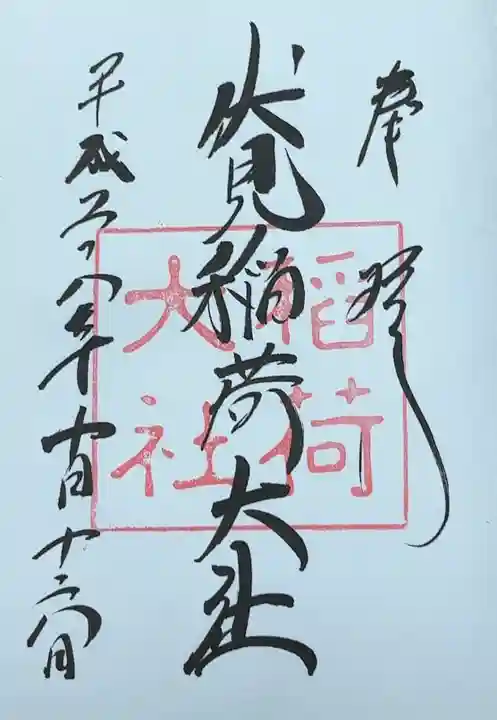 奉拝
伏見稲荷大社
稲荷
大社
平成二十八年十一月十二日